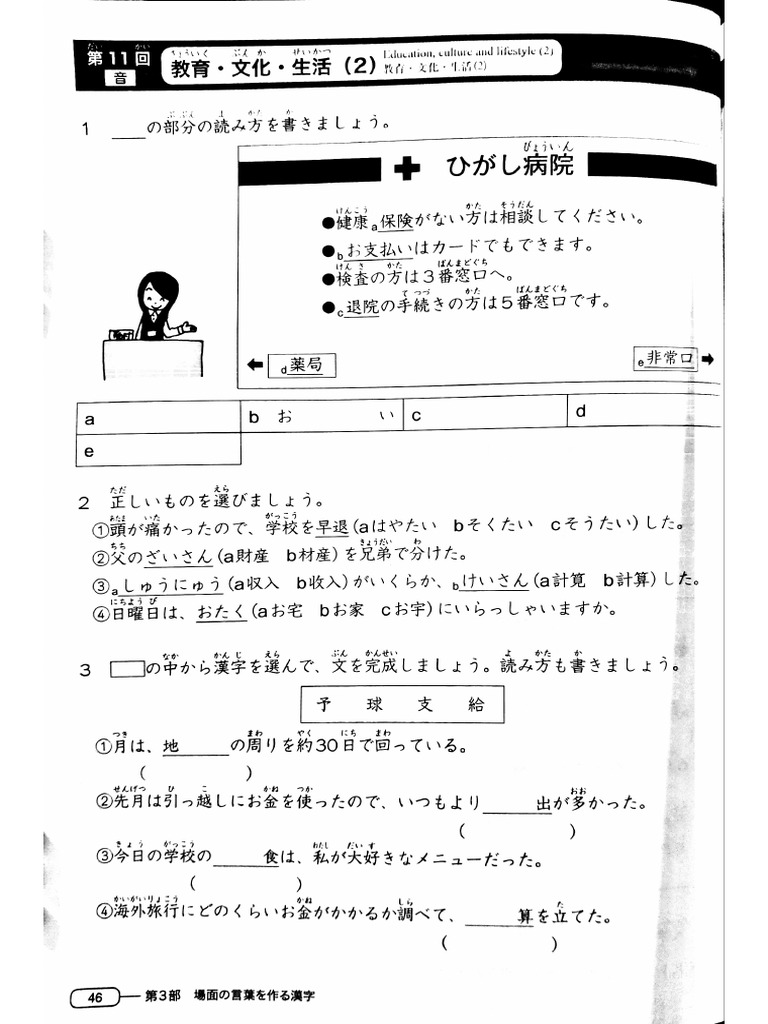 第11回 教育・文化・生活（2） Education, culture and lifestyle (2)
音 教育・文化・生活(2)
1 ＿＿の部分の読み方を書きましょう。
ひがし病院
●健康a保険がない方は相談してください。
●bお支払いはカードでもできます。
●検査の方は3番窓口へ。
●c退院の手続きの方は5番窓口です。
← d薬局 e非常口 →
a b お い c d
e
2 正しいものを選びましょう。
①頭が痛かったので、学校を早退(aはやたい bそくたい cそうたい)した。
②父のざいさん(a財産 b材産)を兄弟で分けた。
③aしゅうにゅう(a収入 b収入)がいくらか、bけいさん(a計筧 b計算)した。
④日曜日は、おたく(aお宅 bお家 cお字)にいらっしゃいますか。
3 □の中から漢字を選んで、文を完成しましょう。読み方も書きましょう。
予 球 支 給
①月は、地＿＿の周りを約30日で回っている。
( )
②先月は引っ越しにお金を使ったので、いつもより＿＿出が多かった。
( )
③今日の学校の＿＿食は、私が大好きなメニューだった。
( )
④海外旅行にどのくらいお金がかかるか調べて、＿＿算を立てた。
( )
46 第3部 場面の言葉を作る漢字